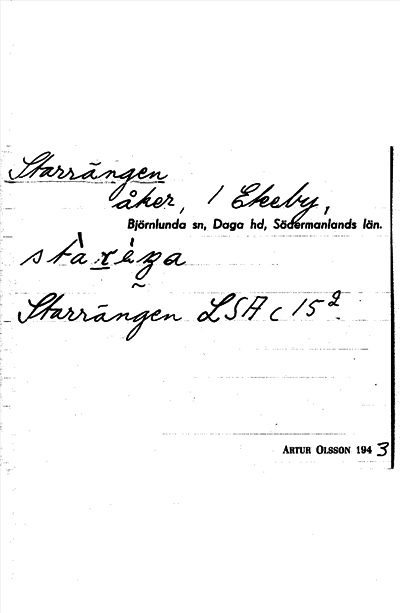 Starrängen
åker, / Ekeby,
Björnlunda sn, Daga hd, Södermanlands län.
Starrängen LSA C 15²
ARTUR OLSSON 1943